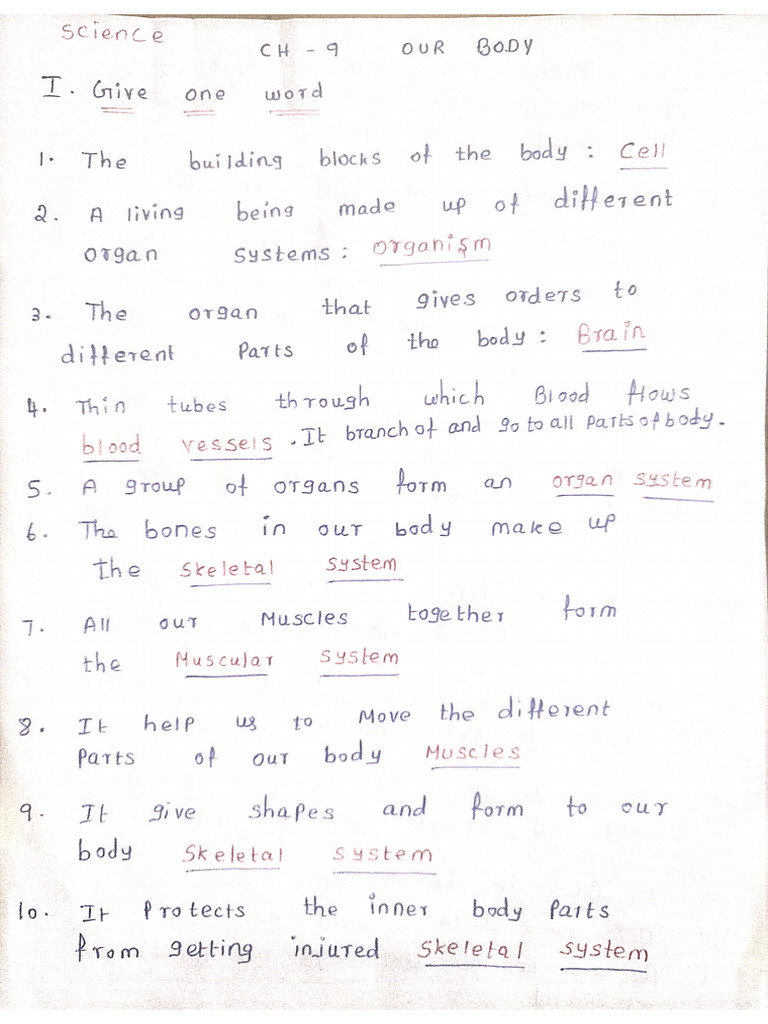 Science
CH - 9 OUR BODY
I. Give one word
1. The building blocks of the body : Cell
2. A living being made up of different
organ systems : organism
3. The organ that gives orders to
different Parts of the body : Brain
4. Thin tubes through which Blood flows
blood vessels . It branch of and go to all parts of body.
5. A group of organs form an organ system
6. The bones in our body make up
the skeletal system
7. All our Muscles together form
the Muscular system
8. It help us to Move the different
Parts of our body Muscles
9. It give shapes and form to our
body Skeletal system
10. It Protects the inner body Parts
from getting injured Skeletal system